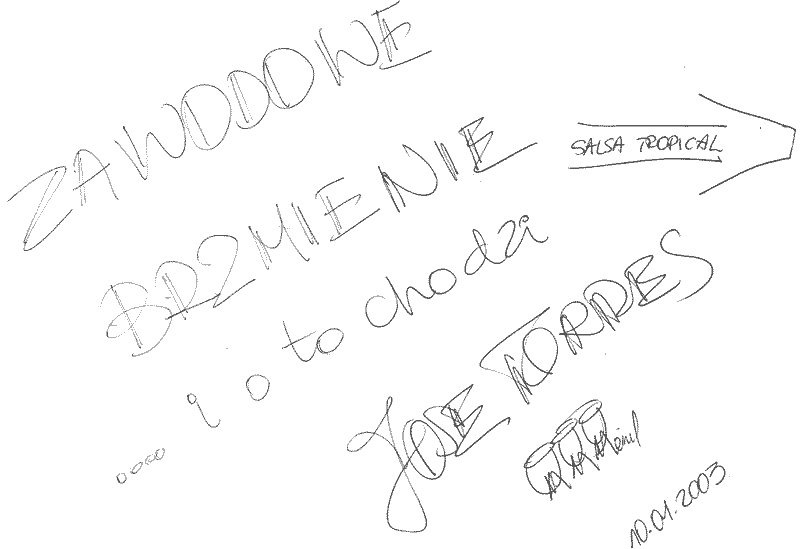 ZAWODOWE
BRZMIENIE
SALSA TROPICAL
.... i o to chodzi
JOSE TORRES
10.01.2003